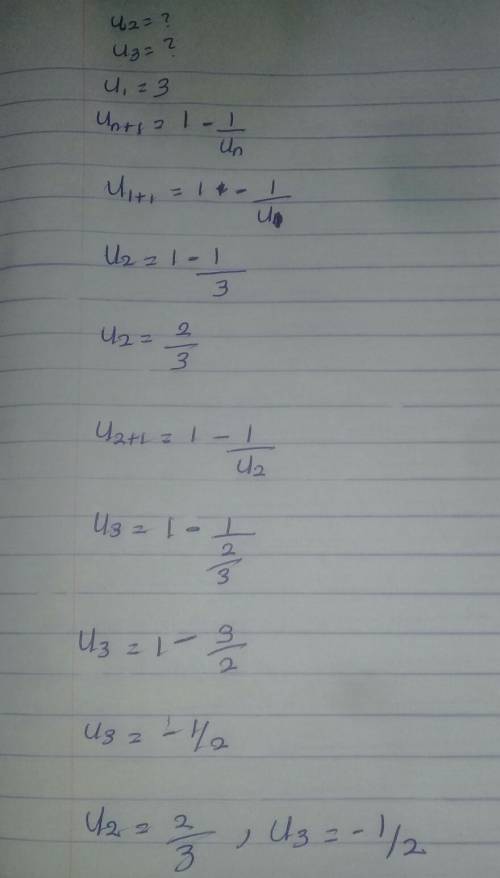 u₂ = ?
u₃ = ?
u₁ = 3
uₙ₊₁ = 1 - 1/uₙ
u₁₊₁ = 1 - 1/u₁
u₂ = 1 - 1/3
u₂ = 2/3
u₂₊₁ = 1 - 1/u₂
u₃ = 1 - 1/(2/3)
u₃ = 1 - 3/2
u₃ = -1/2
u₂ = 2/3 , u₃ = -1/2